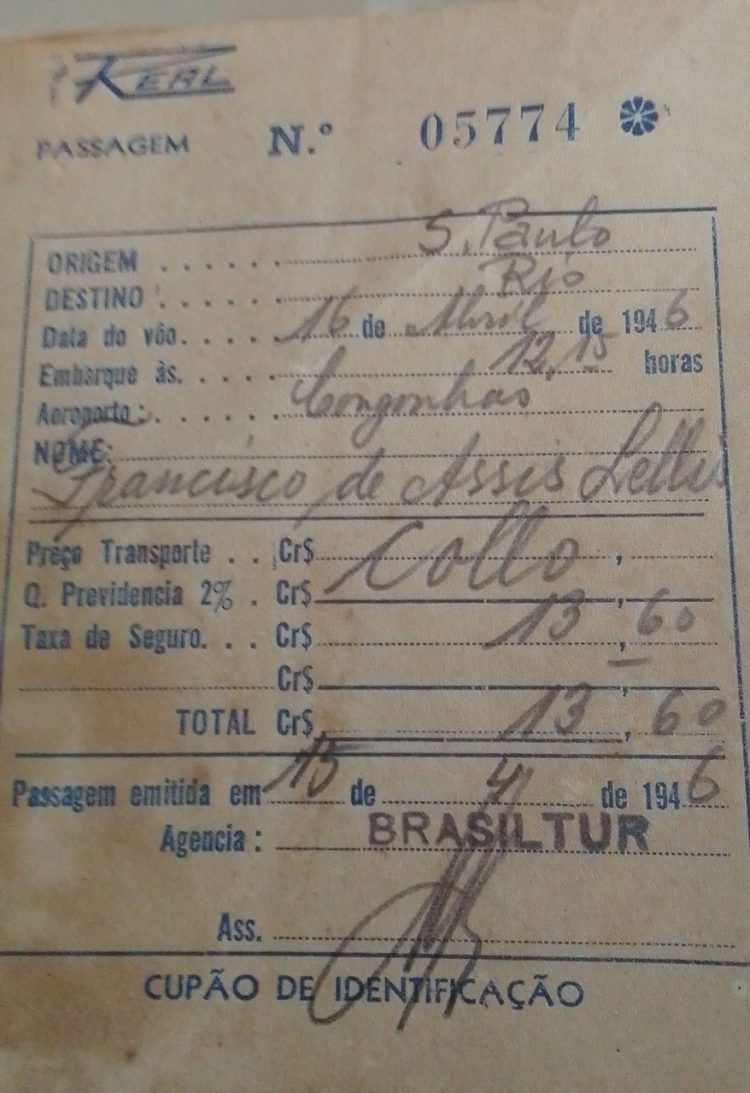 REAL
PASSAGEM N.º 05774
ORIGEM . . . . . . S. Paulo
DESTINO . . . . . . Rio
Data do vôo. . . . . 16 de Abril de 1946
Embarque às. . . . . 12,15 horas
Aeroporto: . . . . . . Congonhas
NOME:
Francisco de Assis Lellis
Preço Transporte . . Cr$ ,
Q. Previdencia 2% . Cr$ ,
Taxa de Seguro. . . Cr$ 13,60
Cr$ ,
TOTAL Cr$ 13,60
Passagem emitida em 15 de 4 de 1946
Agencia : BRASILTUR
Ass.
CUPÃO DE IDENTIFICAÇÃO